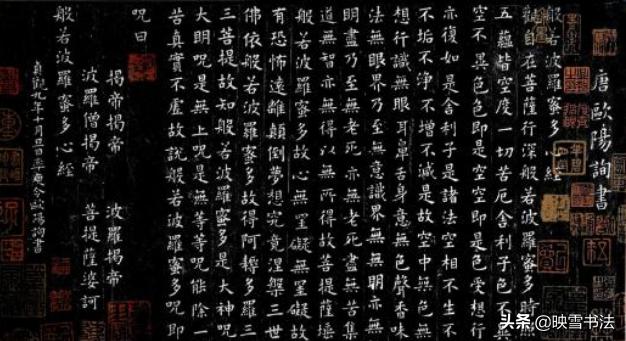 唐歐陽詢書
般若波羅蜜多心經
觀自在菩薩行深般若波羅蜜多時
五蘊皆空度一切苦厄舍利子色不
空不異色色即是空空即是色受想行
亦復如是舍利子是諸法空相不生不
不垢不淨不增不減是故空中無色無
想行識無眼耳鼻舌身意無色聲香味
法無眼界乃至無意識界無無明亦無
明盡乃至無老死亦無老死盡無苦集
道無智亦無得以無所得故菩提薩埵
般若波羅蜜多故心無罣礙無罣礙故
有恐怖遠離顛倒夢想究竟涅槃三世
佛依般若波羅蜜多故得阿耨多羅三
三菩提故知般若波羅蜜多是大神呪
大明呪是無上呪是無等等呪能除一
苦真實不虛故說般若波羅蜜多呪即
呪曰
揭帝揭帝 波羅揭帝
波羅僧揭帝 菩提薩婆訶
般若波羅蜜多心經
貞觀九年十月旦日率更令歐陽詢書
头条@映雪书法